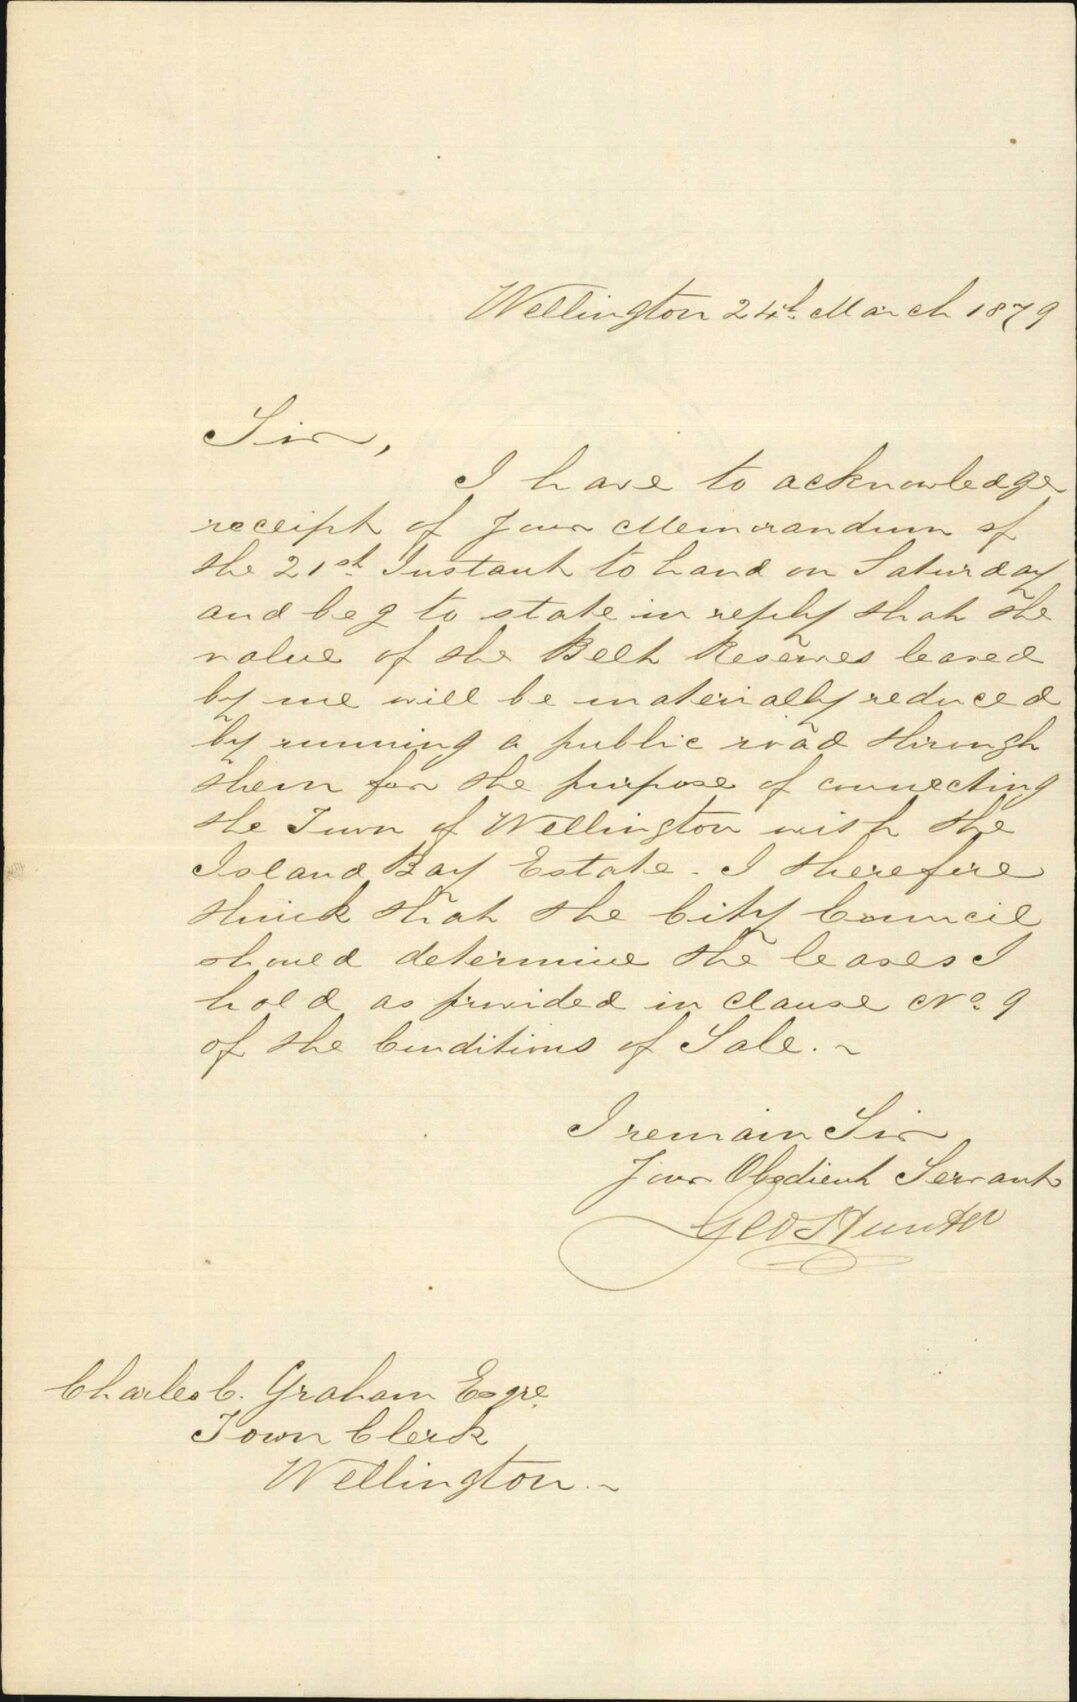 Wellington 24th March 1879
Sir,
I have to acknowledge
receipt of your Memorandum of
the 21st Instant to hand on Saturday
and beg to state in reply that the
value of the Belt Reserves leased
by me will be materially reduced
by running a public road through
them for the purpose of connecting
the Town of Wellington with the
Island Bay Estate. I therefore
think that the City Council
should determine the leases I
hold as provided in Clause No. 9
of the Conditions of Sale. ~
I remain Sir
Your Obedient Servant
Geo Hunter
Charles C. Graham Esqre.
Town Clerk
Wellington. ~